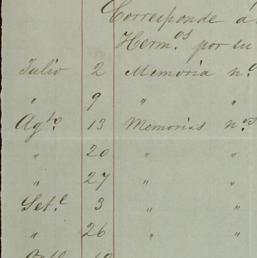 Corresponde á
Herm.os por su
Julio 2 Memoria n.o
" 9 " "
Agto 13 Memorias n.os
" 20 " "
" 27 " "
Set.e 3 " "
" 26 " "